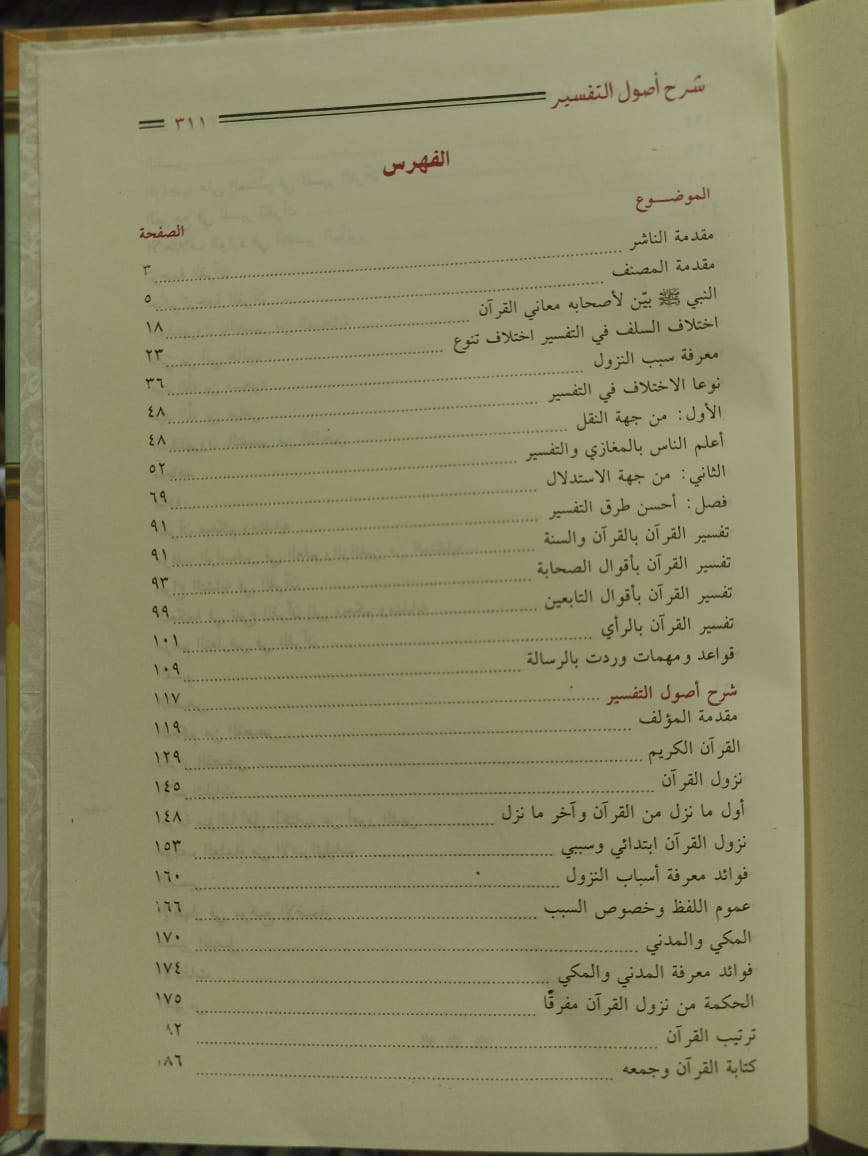 شرح أصول التفسير ٣١١
الفهرس
الموضـــوع الصفحة
مقدمة الناشر ٣
مقدمة المصنف ٥
النبي ﷺ بيّن لأصحابه معاني القرآن ١٨
اختلاف السلف في التفسير اختلاف تنوع ٢٣
معرفة سبب النزول ٣٦
نوعا الاختلاف في التفسير ٤٨
الأول: من جهة النقل ٤٨
أعلم الناس بالمغازي والتفسير ٥٢
الثاني: من جهة الاستدلال ٦٩
فصل: أحسن طرق التفسير ٩١
تفسير القرآن بالقرآن والسنة ٩١
تفسير القرآن بأقوال الصحابة ٩٣
تفسير القرآن بأقوال التابعين ٩٩
تفسير القرآن بالرأي ١٠١
قواعد ومهمات وردت بالرسالة ١٠٩
شرح أصول التفسير ١١٧
مقدمة المؤلف ١١٩
القرآن الكريم ١٢٩
نزول القرآن ١٤٥
أول ما نزل من القرآن وآخر ما نزل ١٤٨
نزول القرآن ابتدائي وسببي ١٥٣
فوائد معرفة أسباب النزول ١٦٠
عموم اللفظ وخصوص السبب ١٦٦
المكي والمدني ١٧٠
فوائد معرفة المدني والمكي ١٧٤
الحكمة من نزول القرآن مفرقًا ١٧٥
ترتيب القرآن
كتابة القرآن وجمعه ١٨٦